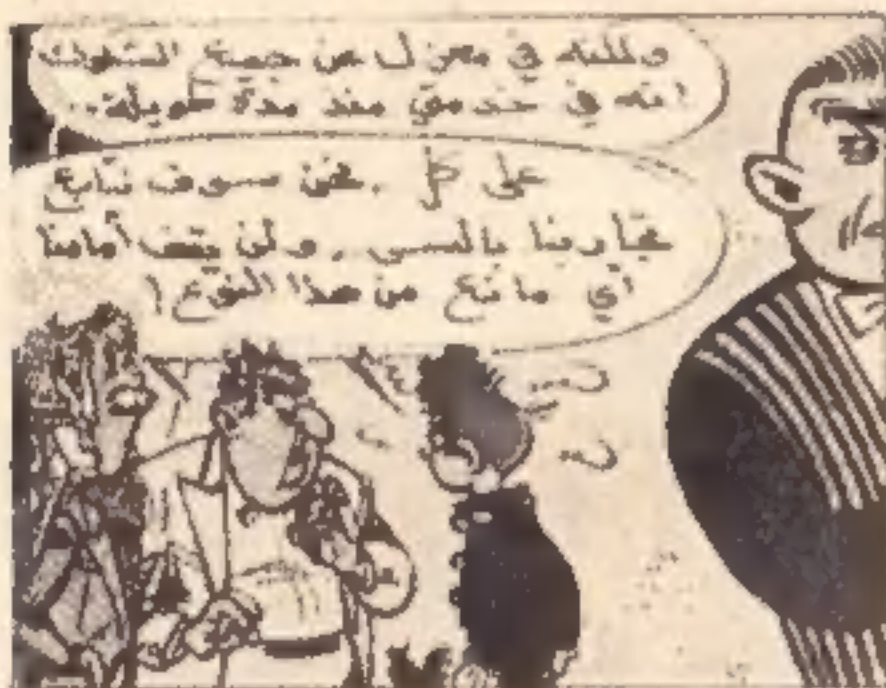 ولكنه في معزل عن جميع الشكوك
انه في خدمتي منذ مدة طويلة..
على كل . نحن سوف نتابع
تجاربنا بالسي .. ولن يقف أمامنا
أي مانع من هذا النوع !